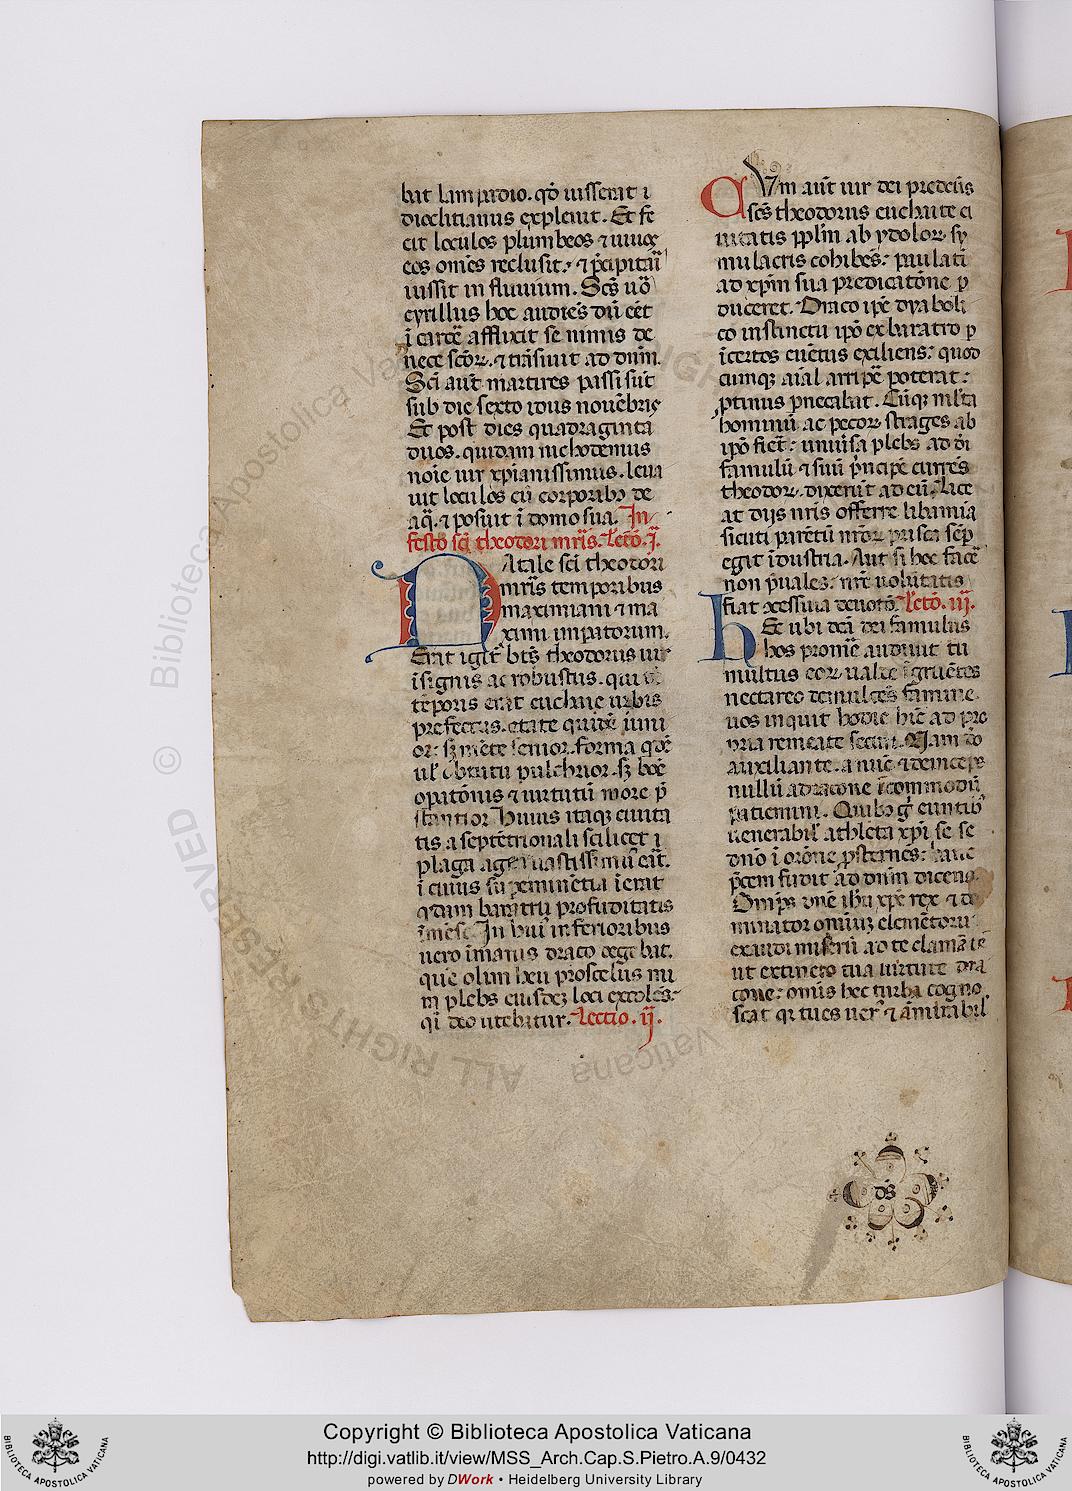 bat lampadio. qd̄ iusserat i
dioclitianus expleuit. Et fe
cit loculos plumbeos ⁊ uiuos
eos om̄es reclusit: ⁊ p̄cipitari
iussit in fluuium. Scs̄ uō
cyrillus hoc audiēs dū eēt
ī carcē affixit se nimis de
nece scōꝝ. ⁊ trāsiuit ad dnm̄.
Sci aut̄ martires passi sūt
sub die sexto idus nouēbris
Et post dies quadraginta
duos. quidam nichodemus
noīe uir xp̄ianissimus. leua
uit loculos cū corporibꝰ de
aq̄. ⁊ posuit ī domo sua. In
festo sci theodori mr̄is. Lectō. i.
Natale sci theodori
mr̄is temporibus
maximiani ⁊ ma
ximi impatorum.
Erat igit᷑ bt̄s theodorus uir
īsignis ac robustus. qui
tēporis erat euchaie urbis
prefectus. etate quidē iuni
or: sꝫ mēte senior. forma qdē
ul̄ obtutu pulchrior. sꝫ boē
opatōnis ⁊ uirtutū more p̄
stantior Huius itaqꝫ ciuita
tis a septētrionali scilicet
plaga ager uastissimꝰ erat.
ī cuius sūp eminētia ī erat
qdam baratrū profūditatis
īmēse. In huiꝰ inferioribus
uero īmanis draco degebat.
quē olim heu p̄oscelus mi
in plebs eiusdeꝫ loci excolēs:
qī deo utebatur. Lectio. ii.
Cum aut̄ uir dei predcūs
scs̄ theodorus euchaite ci
uitatis pplm̄ ab ydoloꝝ sy
mulacris cohibēs: paulatī
ad xpm̄ sua predicatōne p
duceret. Draco ipē dyaboli
co instinctu ipō ex baratro p
īcertos euētus exiliens: quod
cumqꝫ aīal arripē poterat:
ptinus p̄necabat. Cūqꝫ ml̄ta
hominū ac pecoꝝ strages ab
ipō fieēt: uniūsa plebs ad dī
famulū ⁊ suū p̄ncipē currēs
theodoꝝ. dixerūt ad eū. Lice
at diis nrīs offerre libamia
sicuti parētū nrōꝝ prisca sēp
egit īdustria. Aut si hoc facē
non p̄uales: nr̄e uolūtatis
fiat excessiua deuotō. Lectō. iii.
Hec ubi dcā dei famulus
hos promē audiuit tu
multus eoꝝ ualde īgruētes
nectareo demulcēs famine.
uos inquit hodie hīc ad pro
pria remeate securi. Nam dō
auxiliante. a nūc ⁊ deinceps
nullū a dracone īcommodū
patiemini. Quibꝰ g̊ euntibꝰ
uenerabil̄ athleta xp̄i se se
dnō ī orōne prosternēs: hanc
p̄cem fudit ad dnm̄ dicens.
Omīps dnē ihū xp̄e rex ⁊ do
minator omniuꝫ elemētoru
exaudi miserū ad te clamātē
ut extincto tua uirtute dra
cone: omīs hec turba cogno
scat qi tu es uerꝰ ⁊ āmirabil̄
ds̄
Copyright © Biblioteca Apostolica Vaticana
http://digi.vatlib.it/view/MSS_Arch.Cap.S.Pietro.A.9/0432
powered by DWork • Heidelberg University Library